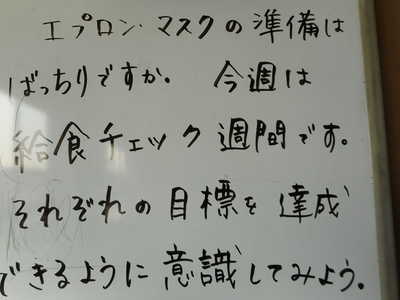 エプロン・マスクの準備は
ばっちりですか。 今週は
給食チェック週間です。
それぞれの目標を達成
できるように意識してみよう。